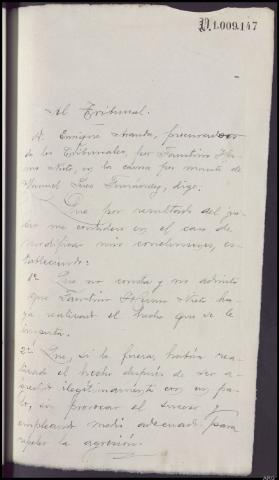 N.1.009.147
Al Tribunal.
D. Enrique Aranda, procurador
de los Tribunales, por Faustino
Nieto, en la causa por muerte de
Manuel Fernandez, digo:
Que por resultado del jui-
cio me considero en el caso de
modificar mis conclusiones, es-
tableciendo:
1ª Que no consta y no admito
que Faustino Nieto ha-
ya realizado el hecho que se le
imputa.
2ª Que, si lo fuera, habria rea-
lizado el hecho después de ser a-
gredido ilegitimamente con un pa-
lo, sin provocar el suceso y
empleando medio adecuado para
repeler la agresión.